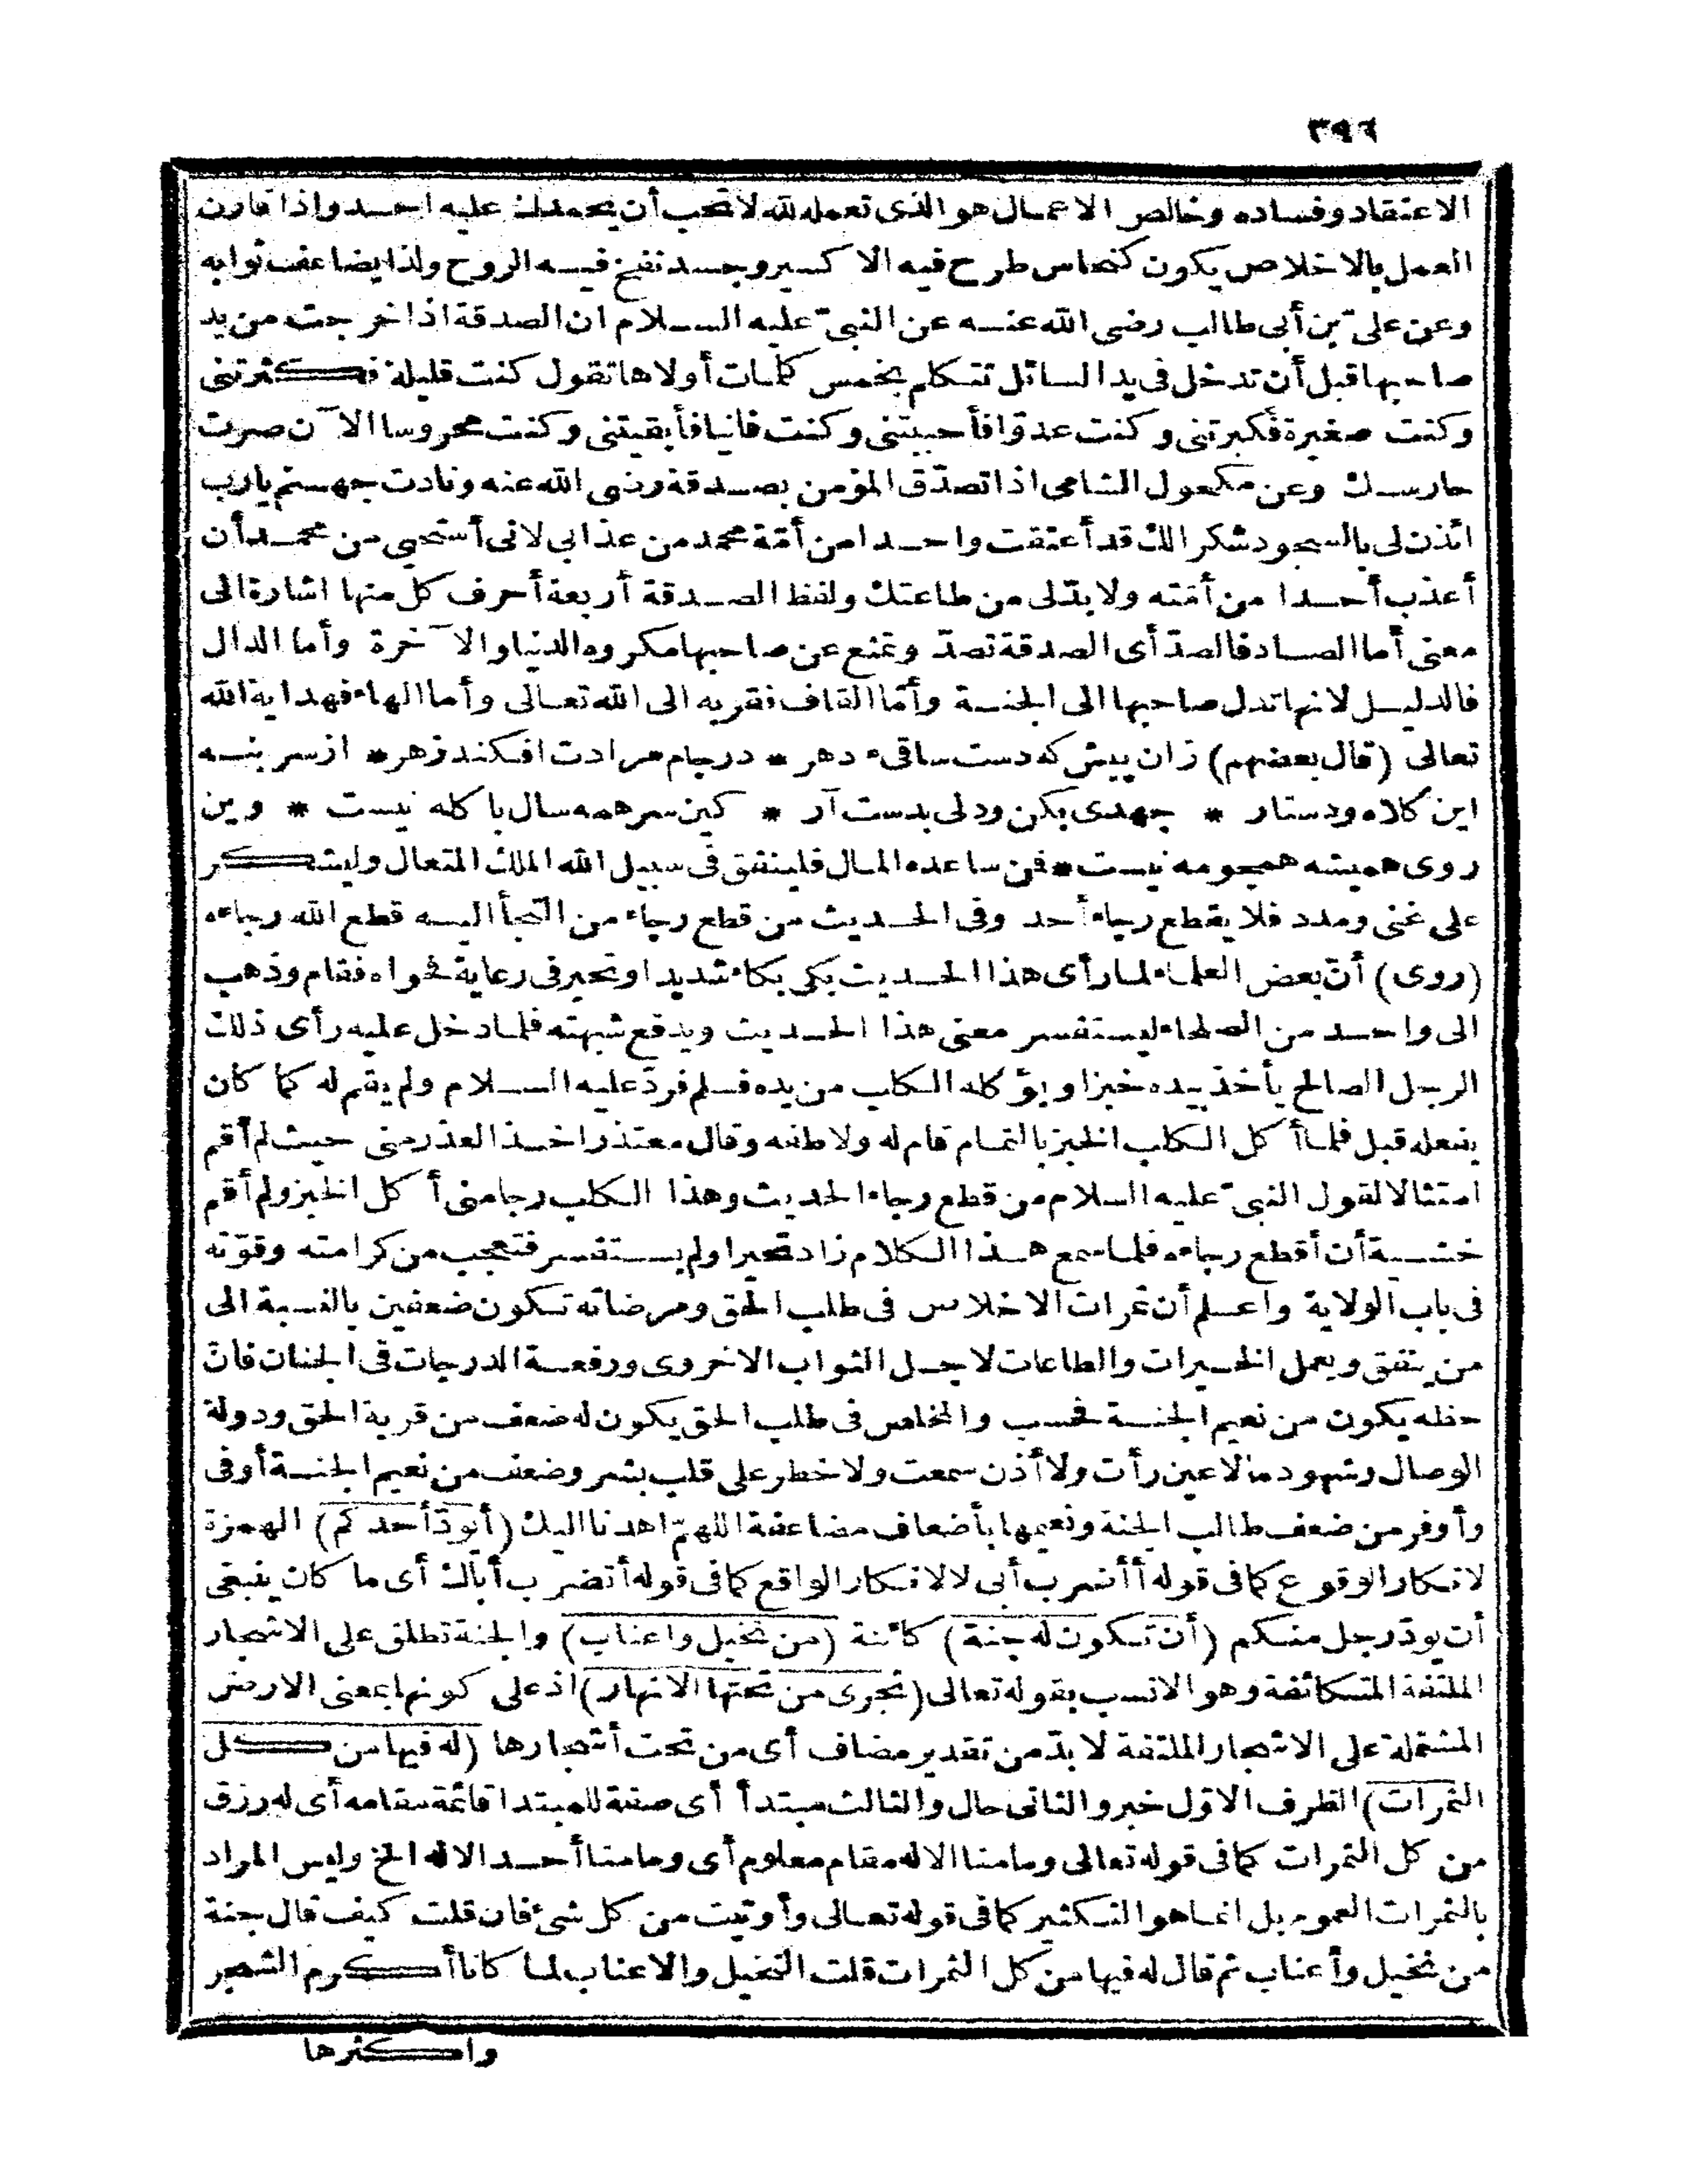 ٣٩٦
الاعتقاد وفساده وخالص الاعمال هو الذى تعمله لله لا تحب أن يحمدك عليه احد واذا قارن
العمل بالاخلاص يكون كنحاس طرح فيه الاكسير وجسد نفخ فيه الروح ولذا يضاعف ثوابه
وعن علىّ بن أبى طالب رضى الله عنه عن النبىّ عليه السلام ان الصدقة اذا خرجت من يد
صاحبها قبل أن تدخل فى يد السائل تتكلم بخمس كلمات أولاها تقول كنت قليلة فكثرتنى
وكنت صغيرة فكبرتنى وكنت عدوّا فأحببتنى وكنت فانيا فأبقيتنى وكنت محروسا الآن صرت
حارسك وعن مكحول الشامى اذا تصدّق المؤمن بصدقة رضى الله عنه ونادت جهنم يارب
ائذن لى بالسجود شكرا لك قد أعتقت واحدا من أمّة محمد من عذابى لانى أستحيى من محمد أن
أعذب أحدا من أمّته ولا بدّ لى من طاعتك ولفظ الصدقة أربعة أحرف كل منها اشارة الى
معنى أما الصاد فالصدّ أى الصدقة تصدّ وتمنع عن صاحبها مكروه الدنيا والآخرة وأما الدال
فالدليل لانها تدل صاحبها الى الجنة وأمّا القاف فقربه الى الله تعالى وأما الهاء فهداية الله
تعالى (قال بعضهم) زان پيش كه دست ساقىء دهر * در جام مرادت افكند زهر * از سر بنه
اين كلاه ودستار * جهدى بكن ودلى بدست آر * كين سر همه سال با كله نيست * وين
روى هميشه همچو مه نيست * فمن ساعده المال فلينفق فى سبيل الله الملك المتعال وليشكر
على غنى ومدد فلا يقطع رجاء أحد وفى الحديث من قطع رجاء من التجأ اليه قطع الله رجاءه
(روى) أنّ بعض العلماء لما رأى هذا الحديث بكى بكاء شديدا وتحير فى رعاية فحواه فقام وذهب
الى واحد من الصلحاء ليستفسر معنى هذا الحديث ويدفع شبهته فلما دخل عليه رأى ذلك
الرجل الصالح يأخذ بيده خبزا ويؤكله الكلب من يده فسلم فردّ عليه السلام ولم يقم له كما كان
يفعله قبل فلما أكل الكلب الخبز بالتمام قام له ولاطفه وقال معتذرا خذ العذر منى حيث لم أقم
امتثالا لقول النبىّ عليه السلام من قطع رجاء الحديث وهذا الكلب رجا منى أكل الخبز ولم أقم
خشية أن أقطع رجاءه فلما سمع هذا الكلام زاد تحيرا ولم يستفسر فتعجب من كرامته وقوّته
فى باب الولاية واعلم أن ثمرات الاخلاص فى طلب الحق ومرضاته تكون ضعفين بالنسبة الى
من ينفق ويعمل الخيرات والطاعات لاجل الثواب الاخروى ورفعة الدرجات فى الجنان فان
حظه يكون من نعيم الجنة فحسب والمخلص فى طلب الحق يكون له ضعف من قربة الحق ودولة
الوصال وشهود مالا عين رأت ولا أذن سمعت ولا خطر على قلب بشر وضعف من نعيم الجنة أوفى
وأوفر من ضعف طالب الجنة ونعيمها بأضعاف مضاعفة اللهمّ اهدنا اليك (أيودّ أحدكم) الهمزة
لانكار الوقوع كما فى قوله أأضرب أبى لا لانكار الواقع كما فى قوله أتضرب أباك أى ما كان ينبغى
أن يودّ رجل منكم (أن تكون له جنة) كائنة (من نخيل واعناب) والجنة تطلق على الاشجار
الملتفة المتكاثفة وهو الانسب بقوله تعالى (تجرى من تحتها الانهار) اذ على كونها بمعنى الارض
المشتملة على الاشجار الملتفة لا بدّ من تقدير مضاف أى من تحت أشجارها (له فيها من كل
الثمرات) الظرف الاوّل خبر والثانى حال والثالث مبتدأ أى صفة للمبتدا قائمة مقامه أى له رزق
من كل الثمرات كما فى قوله تعالى وما منا الا له مقام معلوم أى وما منا أحد الا له الخ وليس المراد
بالثمرات العموم بل انما هو التكثير كما فى قوله تعالى وأوتيت من كل شىء فان قلت كيف قال جنة
من نخيل وأعناب ثم قال له فيها من كل الثمرات قلت النخيل والاعناب لما كانا أكرم الشجر
واكثرها